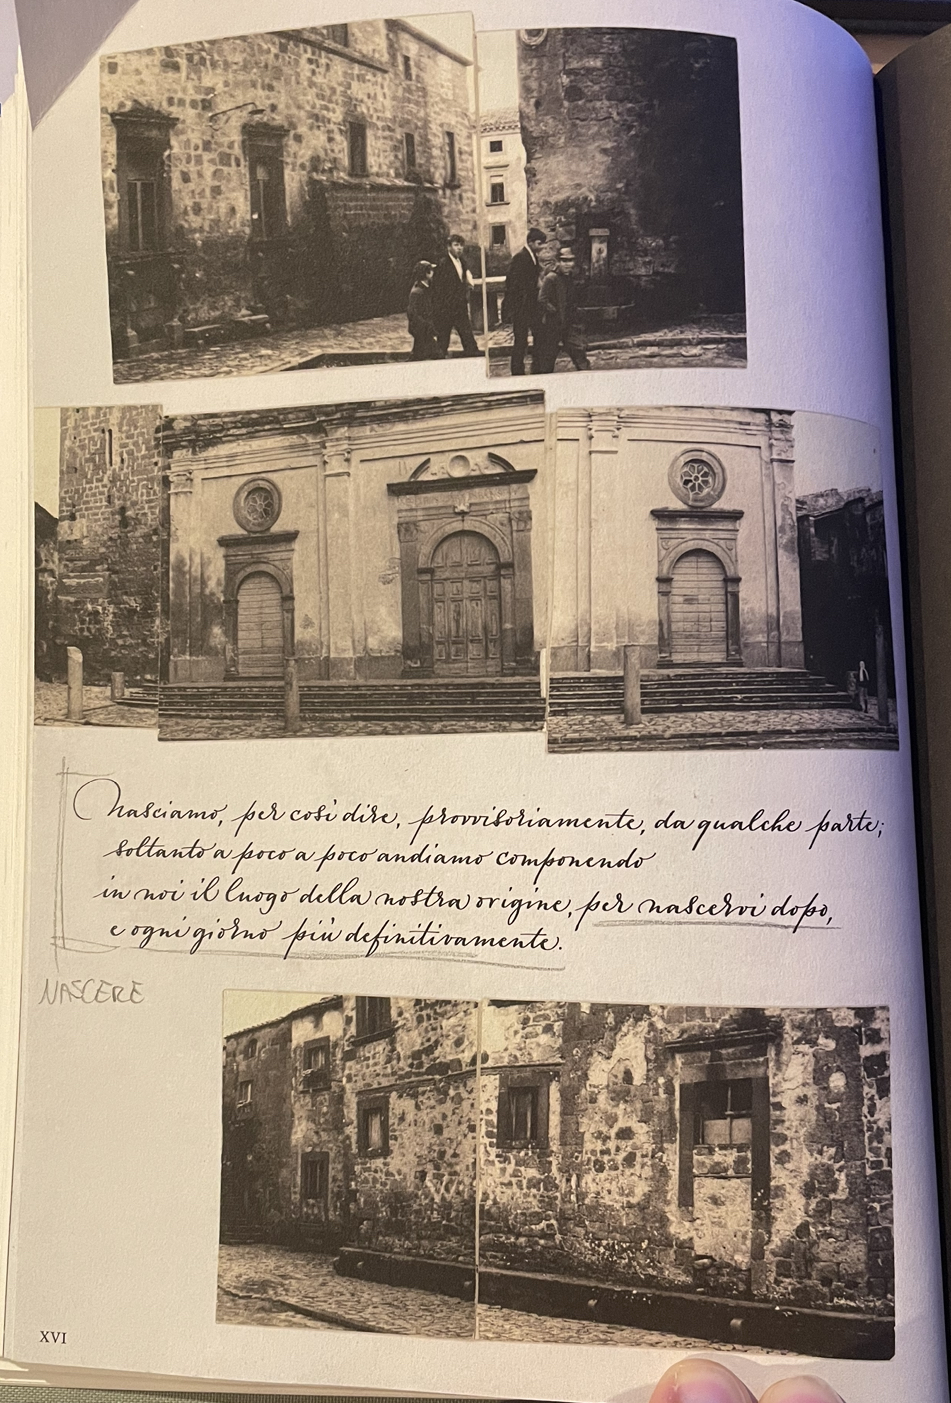 Nasciamo, per così dire, provvisoriamente, da qualche parte;
soltanto a poco a poco andiamo componendo
in noi il luogo della nostra origine, per nascervi dopo,
e ogni giorno più definitivamente.
NASCERE
XVI